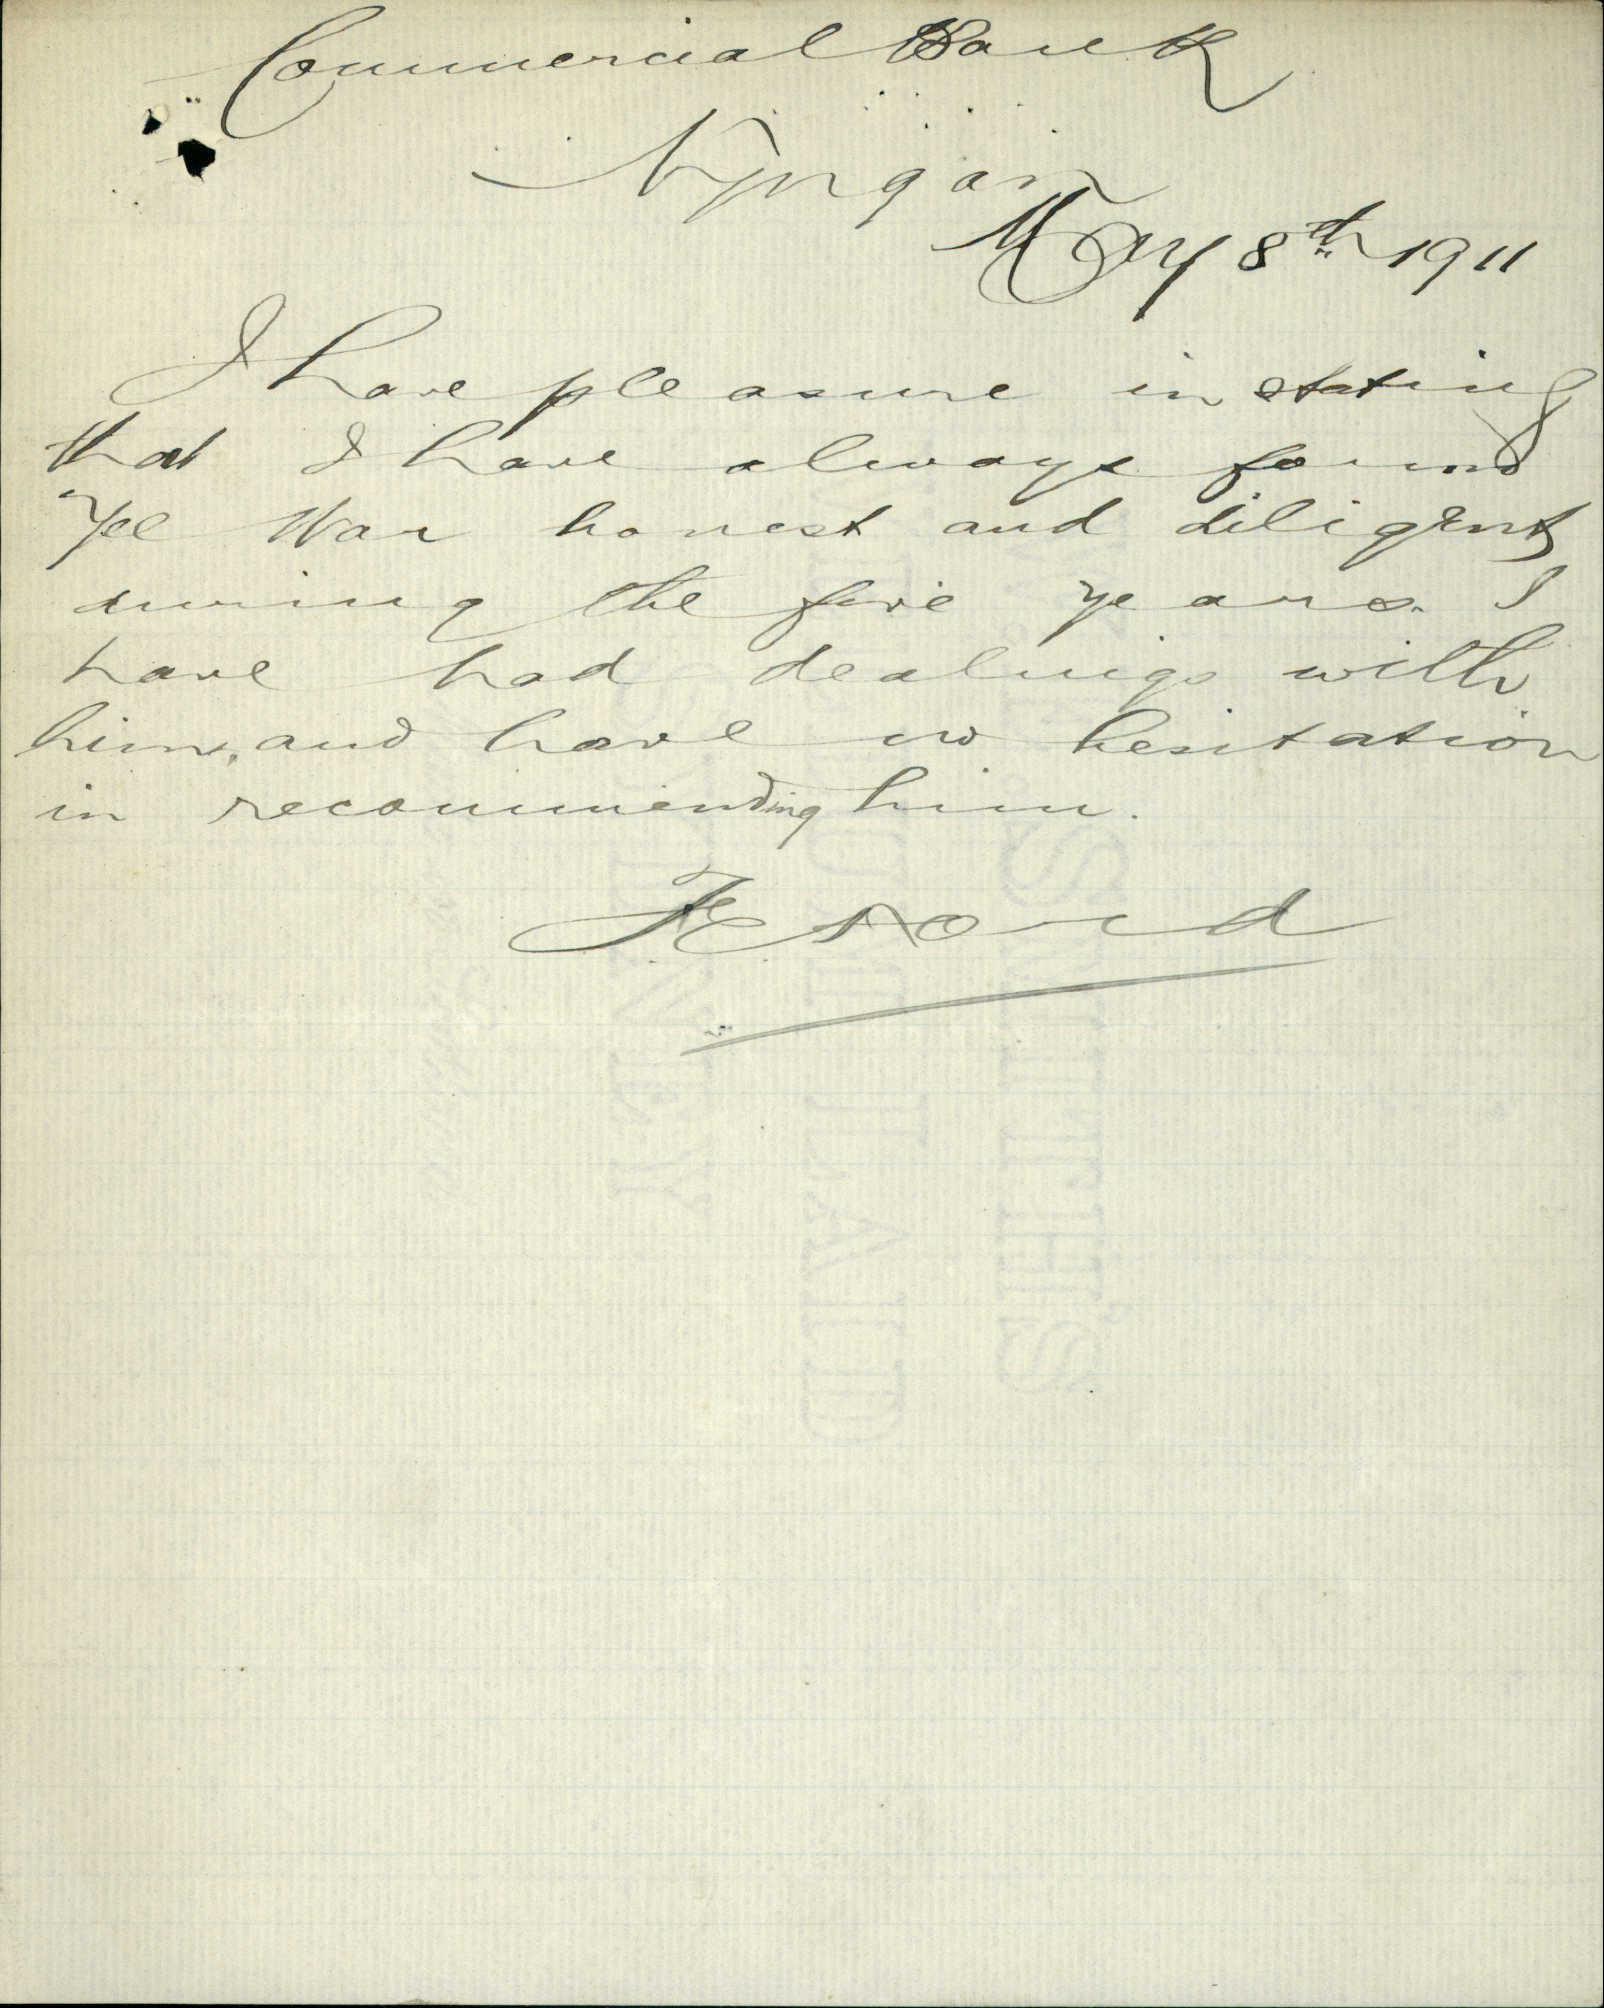 Commercial Bank
Nyngan
May 8th 1911
I have pleasure in stating
that I have always found
Yee War honest and diligent
during the five years I
have had dealings with
him, and have no hesitation
in recommending him.